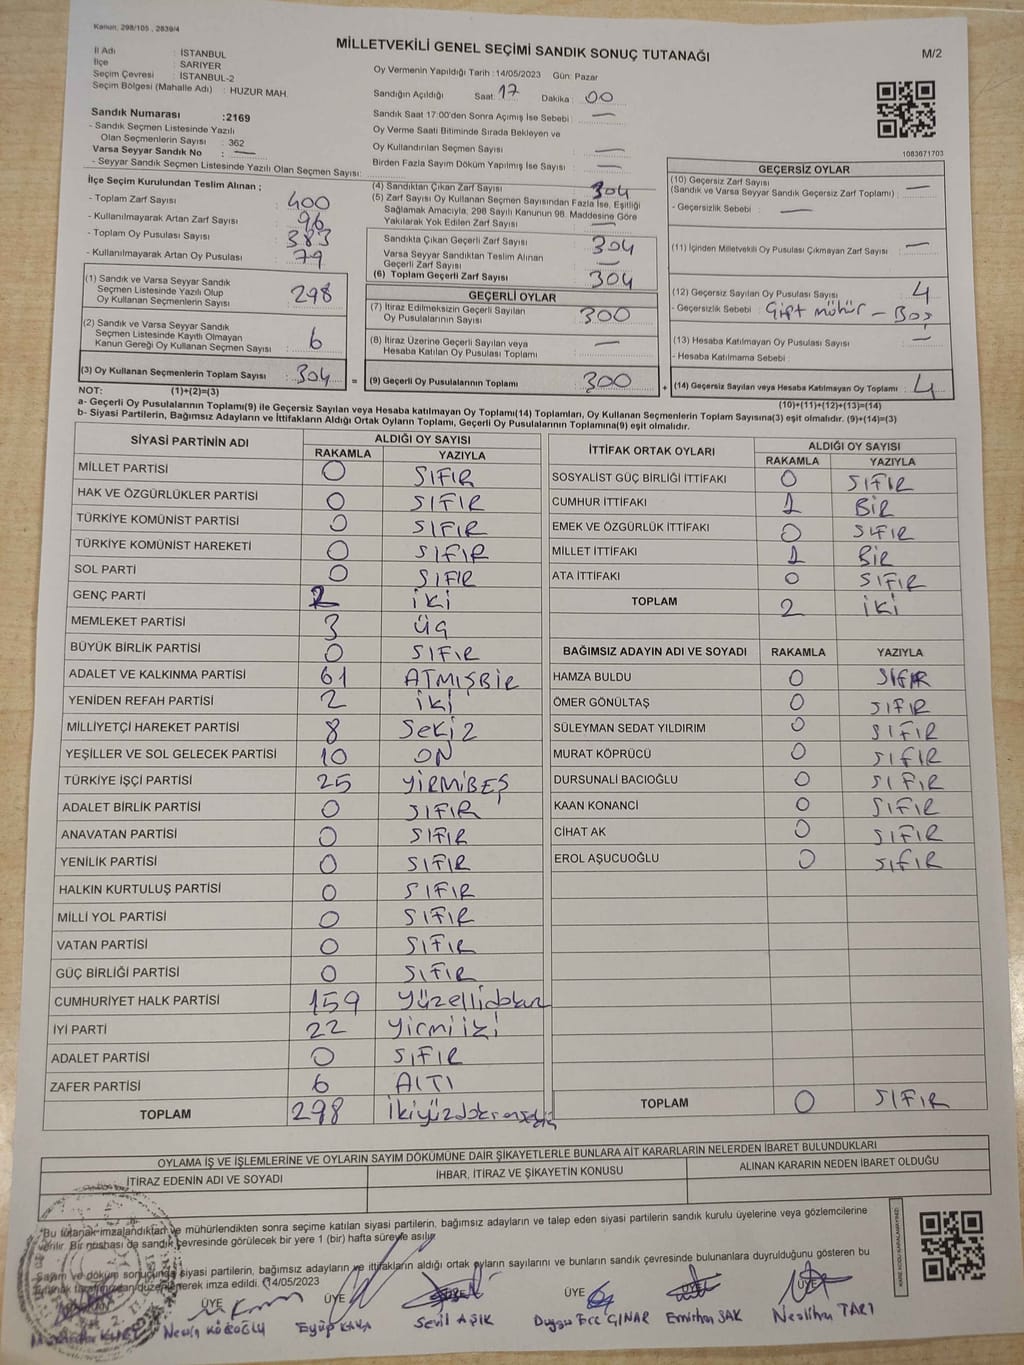 Kanun, 298/105 , 2839/4
MİLLETVEKİLİ GENEL SEÇİMİ SANDIK SONUÇ TUTANAĞI
M/2
İl Adı : İSTANBUL
İlçe : SARIYER
Seçim Çevresi : İSTANBUL-2
Seçim Bölgesi (Mahalle Adı) : HUZUR MAH.
Oy Vermenin Yapıldığı Tarih : 14/05/2023 Gün: Pazar
Sandığın Açıldığı Saat: 17 Dakika : 00
Sandık Saat 17:00'den Sonra Açımış İse Sebebi : —
Oy Verme Saati Bitiminde Sırada Bekleyen ve
Oy Kullandırılan Seçmen Sayısı : —
Birden Fazla Sayım Döküm Yapılmış İse Sayısı : —
1083671703
Sandık Numarası :2169
- Sandık Seçmen Listesinde Yazılı
Olan Seçmenlerin Sayısı : 362
Varsa Seyyar Sandık No : —
- Seyyar Sandık Seçmen Listesinde Yazılı Olan Seçmen Sayısı:
İlçe Seçim Kurulundan Teslim Alınan ;
- Toplam Zarf Sayısı : 400
- Kullanılmayarak Artan Zarf Sayısı : 96
- Toplam Oy Pusulası Sayısı : 383
- Kullanılmayarak Artan Oy Pusulası : 79
(1) Sandık ve Varsa Seyyar Sandık
Seçmen Listesinde Yazılı Olup
Oy Kullanan Seçmenlerin Sayısı : 298
(2) Sandık ve Varsa Seyyar Sandık
Seçmen Listesinde Kayıtlı Olmayan
Kanun Gereği Oy Kullanan Seçmen Sayısı : 6
(3) Oy Kullanan Seçmenlerin Toplam Sayısı : 304
(1)+(2)=(3)
(4) Sandıktan Çıkan Zarf Sayısı : 304
(5) Zarf Sayısı Oy Kullanan Seçmen Sayısından Fazla İse, Eşitliği
Sağlamak Amacıyla, 298 Sayılı Kanunun 98. Maddesine Göre
Yakılarak Yok Edilen Zarf Sayısı : —
Sandıkta Çıkan Geçerli Zarf Sayısı : 304
Varsa Seyyar Sandıktan Teslim Alınan
Geçerli Zarf Sayısı : —
(6) Toplam Geçerli Zarf Sayısı : 304
GEÇERLİ OYLAR
(7) İtiraz Edilmeksizin Geçerli Sayılan
Oy Pusulalarının Sayısı : 300
(8) İtiraz Üzerine Geçerli Sayılan veya
Hesaba Katılan Oy Pusulası Toplamı : —
= (9) Geçerli Oy Pusulalarının Toplamı : 300
GEÇERSİZ OYLAR
(10) Geçersiz Zarf Sayısı
(Sandık ve Varsa Seyyar Sandık Geçersiz Zarf Toplamı) : —
- Geçersizlik Sebebi : —
(11) İçinden Milletvekili Oy Pusulası Çıkmayan Zarf Sayısı : —
(12) Geçersiz Sayılan Oy Pusulası Sayısı : 4
- Geçersizlik Sebebi : Çift mühür – Boş
(13) Hesaba Katılmayan Oy Pusulası Sayısı : —
- Hesaba Katılmama Sebebi :
+ (14) Geçersiz Sayılan veya Hesaba Katılmayan Oy Toplamı : 4
(10)+(11)+(12)+(13)=(14)
NOT:
a- Geçerli Oy Pusulalarının Toplamı(9) ile Geçersiz Sayılan veya Hesaba katılmayan Oy Toplamı(14) Toplamları, Oy Kullanan Seçmenlerin Toplam Sayısına(3) eşit olmalıdır. (9)+(14)=(3)
b- Siyasi Partilerin, Bağımsız Adayların ve İttifakların Aldığı Ortak Oyların Toplamı, Geçerli Oy Pusulalarının Toplamına(9) eşit olmalıdır.
SİYASİ PARTİNİN ADI ALDIĞI OY SAYISI
RAKAMLA YAZIYLA
MİLLET PARTİSİ 0 SIFIR
HAK VE ÖZGÜRLÜKLER PARTİSİ 0 SIFIR
TÜRKİYE KOMÜNİST PARTİSİ 0 SIFIR
TÜRKİYE KOMÜNİST HAREKETİ 0 SIFIR
SOL PARTİ 0 SIFIR
GENÇ PARTİ 2 iki
MEMLEKET PARTİSİ 3 üç
BÜYÜK BİRLİK PARTİSİ 0 SIFIR
ADALET VE KALKINMA PARTİSİ 61 ATMIŞBİR
YENİDEN REFAH PARTİSİ 2 iki
MİLLİYETÇİ HAREKET PARTİSİ 8 Sekiz
YEŞİLLER VE SOL GELECEK PARTİSİ 10 ON
TÜRKİYE İŞÇİ PARTİSİ 25 YİRMİBEŞ
ADALET BİRLİK PARTİSİ 0 SIFIR
ANAVATAN PARTİSİ 0 SIFIR
YENİLİK PARTİSİ 0 SIFIR
HALKIN KURTULUŞ PARTİSİ 0 SIFIR
MİLLİ YOL PARTİSİ 0 SIFIR
VATAN PARTİSİ 0 SIFIR
GÜÇ BİRLİĞİ PARTİSİ 0 SIFIR
CUMHURİYET HALK PARTİSİ 159 Yüzellidokuz
İYİ PARTİ 22 Yirmiiki
ADALET PARTİSİ 0 SIFIR
ZAFER PARTİSİ 6 ALTI
TOPLAM 298 İkiyüzdoksansekiz
İTTİFAK ORTAK OYLARI ALDIĞI OY SAYISI
RAKAMLA YAZIYLA
SOSYALİST GÜÇ BİRLİĞİ İTTİFAKI 0 SIFIR
CUMHUR İTTİFAKI 1 BİR
EMEK VE ÖZGÜRLÜK İTTİFAKI 0 SIFIR
MİLLET İTTİFAKI 1 BİR
ATA İTTİFAKI 0 SIFIR
TOPLAM 2 iki
BAĞIMSIZ ADAYIN ADI VE SOYADI RAKAMLA YAZIYLA
HAMZA BULDU 0 SIFIR
ÖMER GÖNÜLTAŞ 0 SIFIR
SÜLEYMAN SEDAT YILDIRIM 0 SIFIR
MURAT KÖPRÜCÜ 0 SIFIR
DURSUNALİ BACIOĞLU 0 SIFIR
KAAN KONANCİ 0 SIFIR
CİHAT AK 0 SIFIR
EROL AŞUCUOĞLU 0 SIFIR
TOPLAM 0 SIFIR
OYLAMA İŞ VE İŞLEMLERİNE VE OYLARIN SAYIM DÖKÜMÜNE DAİR ŞİKAYETLERLE BUNLARA AİT KARARLARIN NELERDEN İBARET BULUNDUKLARI
İTİRAZ EDENİN ADI VE SOYADI İHBAR, İTİRAZ VE ŞİKAYETİN KONUSU ALINAN KARARIN NEDEN İBARET OLDUĞU
"Bu tutanak imzalandıktan ve mühürlendikten sonra seçime katılan siyasi partilerin, bağımsız adayların ve talep eden siyasi partilerin sandık kurulu üyelerine veya gözlemcilerine
verilir. Bir nüshası da sandık çevresinde görülecek bir yere 1 (bir) hafta süreyle asılır.
Sayım ve döküm sonucunda siyasi partilerin, bağımsız adayların ve ittifakların aldığı ortak oyların sayılarını ve bunların sandık çevresinde bulunanlara duyrulduğunu gösteren bu
tutanak tarafımızdan düzenlenerek imza edildi. 14/05/2023
ÜYE ÜYE ÜYE ÜYE
Eyüp KAYA Sevil AŞIK Duygu Ece ÇINAR Emirhan SAK Neslihan TARI